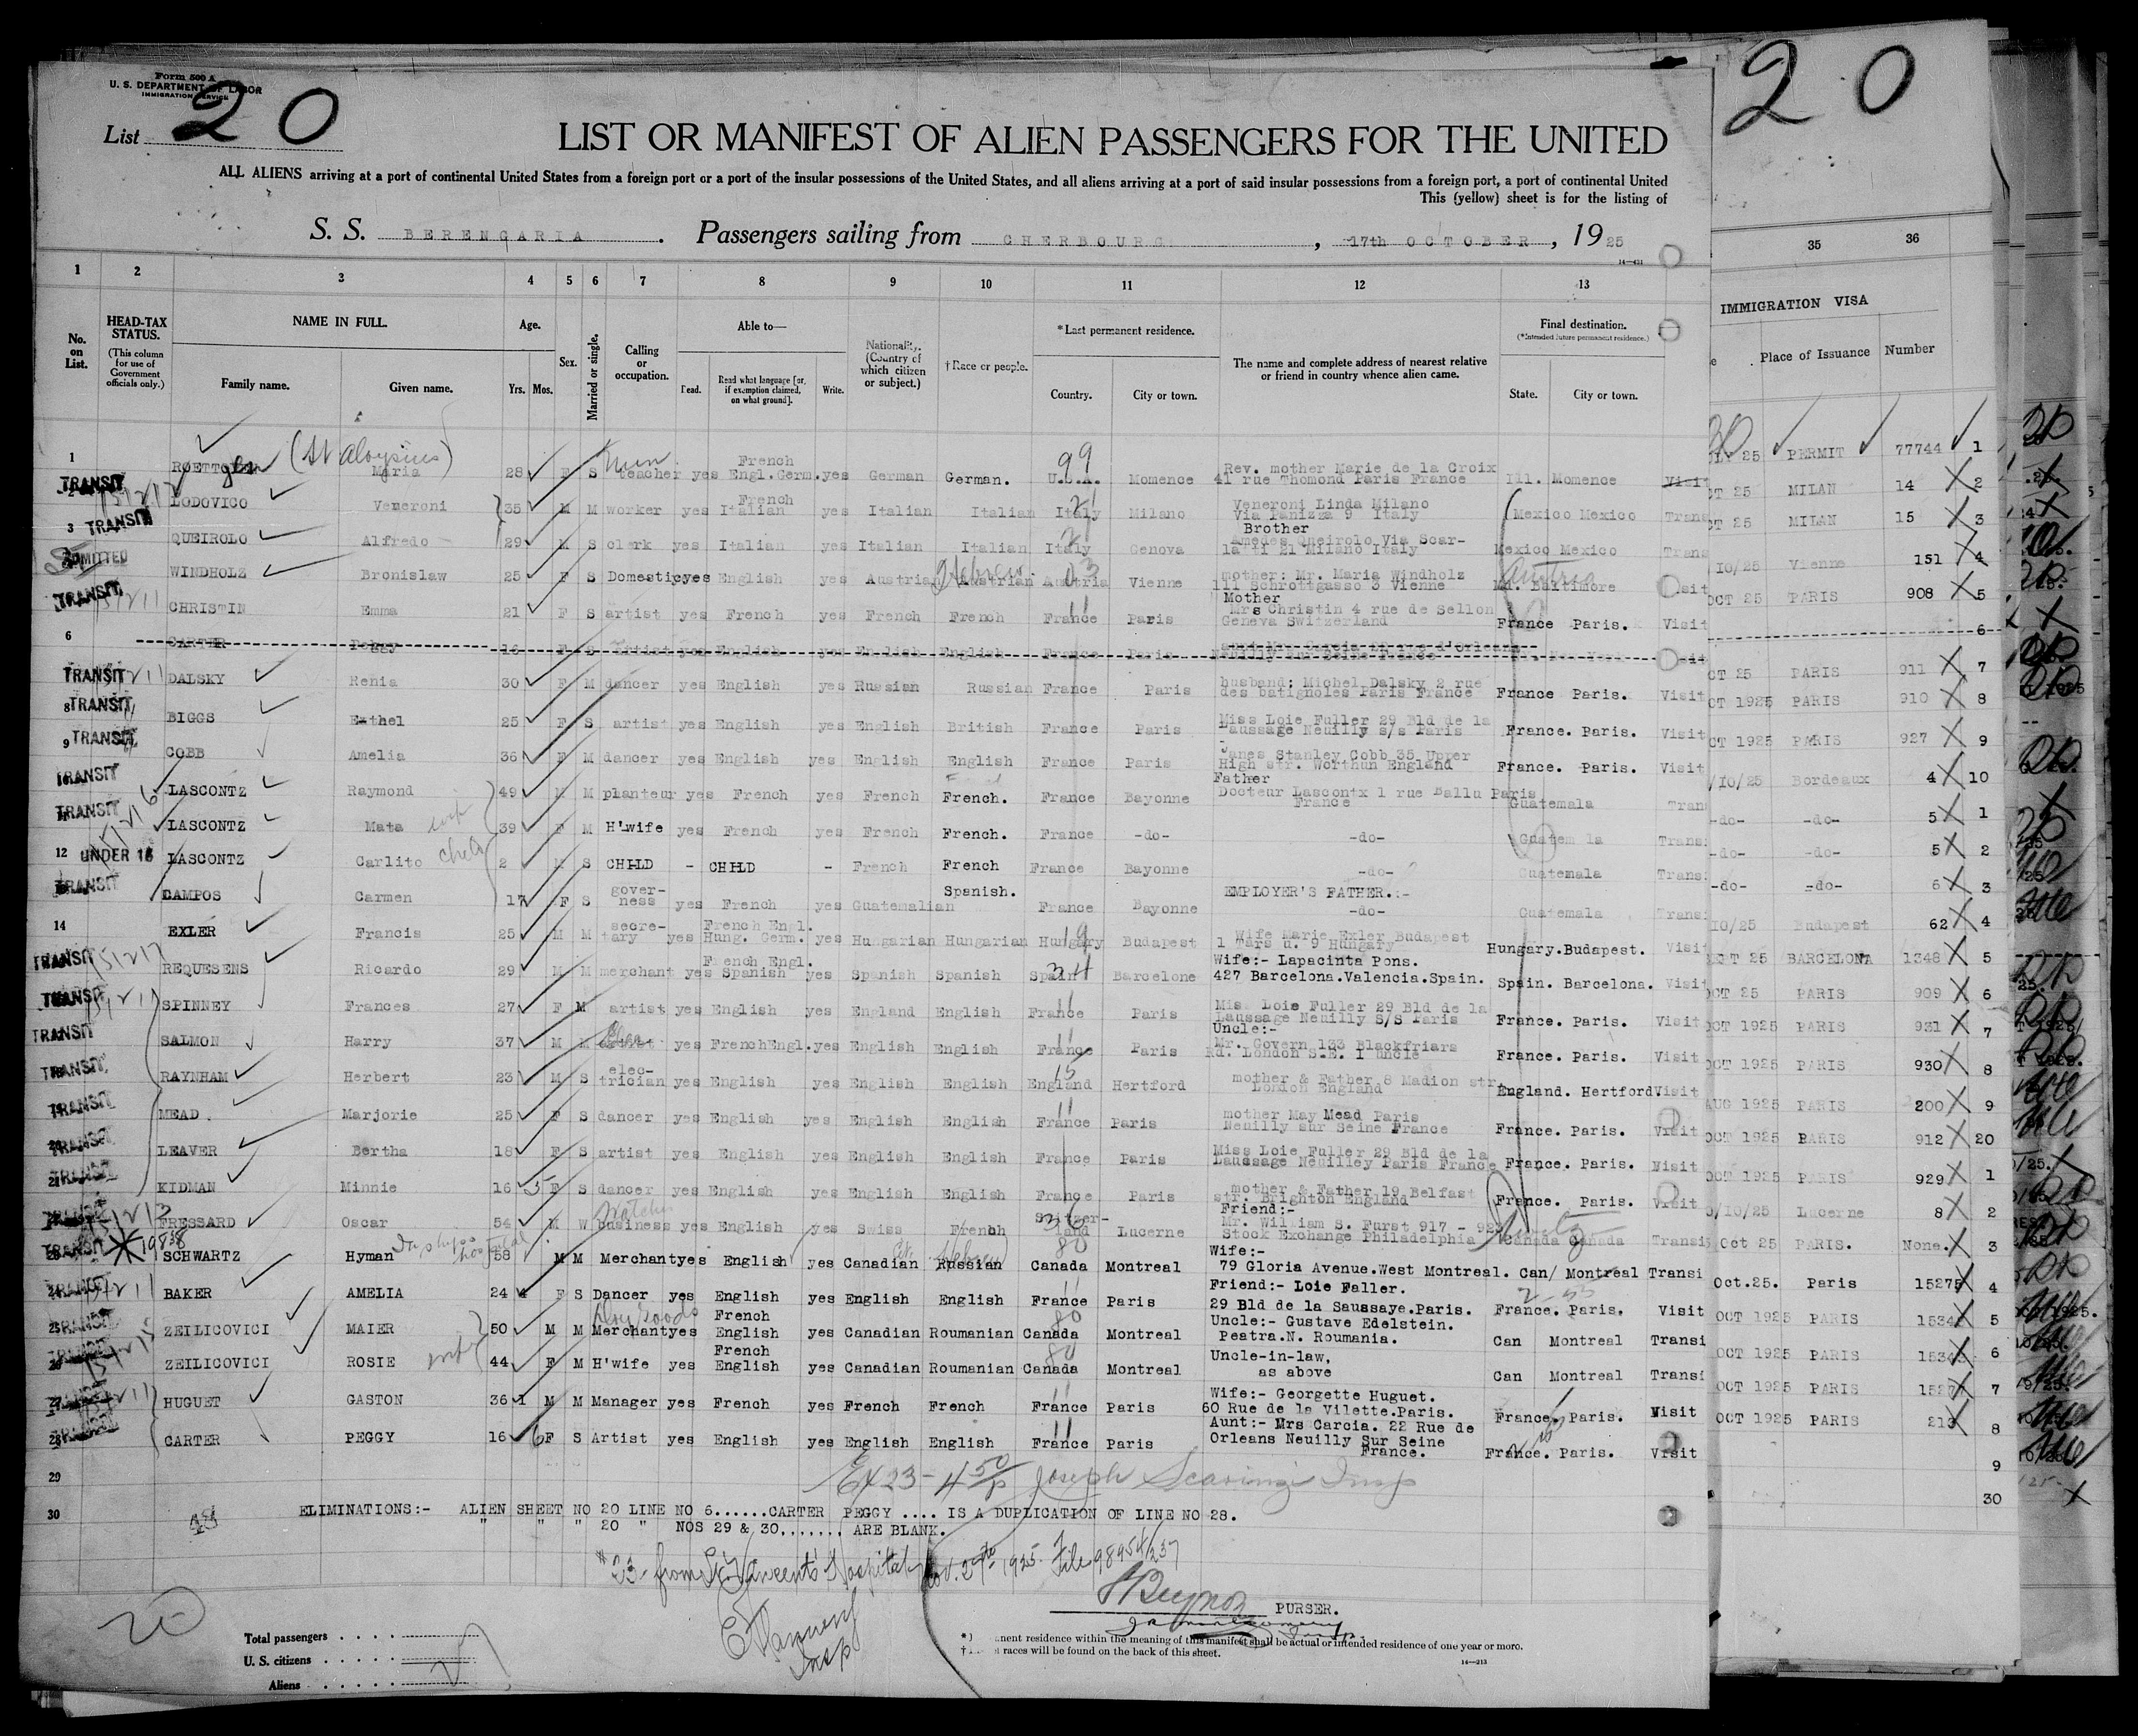 Form 500 A
U. S. DEPARTMENT OF LABOR
IMMIGRATION SERVICE
List 20
20
LIST OR MANIFEST OF ALIEN PASSENGERS FOR THE UNITED
ALL ALIENS arriving at a port of continental United States from a foreign port or a port of the insular possessions of the United States, and all aliens arriving at a port of said insular possessions from a foreign port, a port of continental United
This (yellow) sheet is for the listing of
S. S. BERENGARIA. Passengers sailing from CHERBOURG, 17th OCTOBER, 1925
1 2 3 4 5 6 7 8 9 10 11 12 13 35 36
No. on List. HEAD-TAX STATUS. (This column for use of Government officials only.) NAME IN FULL. Family name. Given name. Age. Yrs. Mos. Sex. Married or single. Calling or occupation. Able to— Read. Read what language [or, if exemption claimed, on what ground]. Write. Nationality. (Country of which citizen or subject.) †Race or people. *Last permanent residence. Country. City or town. The name and complete address of nearest relative or friend in country whence alien came. Final destination. (*Intended future permanent residence.) State. City or town. IMMIGRATION VISA Place of Issuance Number
1 ROETTGEN (St Aloysius) Maria 28 F S Nun teacher yes French Engl.Germ. yes German German. U.S.A. Momence Rev. mother Marie de la Croix 41 rue Thomond Paris France Ill. Momence Visit 25 PERMIT 77744 1
TRANSIT 2 LODOVICO Veneroni 35 M M worker yes French Italian yes Italian Italian Italy Milano Veneroni Linda Milano Via Panizza 9 Italy Mexico Mexico Trans OCT 25 MILAN 14 2
3 TRANSIT QUEIROLO Alfredo 29 M S clerk yes Italian yes Italian Italian Italy Genova Brother Amedes Queirolo Via Scar- latti 21 Milano Italy Mexico Mexico Trans OCT 25 MILAN 15 3
ADMITTED WINDHOLZ Bronislaw 25 F S Domestic yes English yes Austrian Hebrew Austrian Austria Vienne mother: Mr. Maria Windholz 111 Schrottgasso 3 Vienne Austria Md. Baltimore Visit /10/25 Vienne 151 4
TRANSIT CHRISTIN Emma 21 F S artist yes French yes French French France Paris Mother Mrs Christin 4 rue de Sellon Geneva Switzerland France Paris. Visit OCT 25 PARIS 908 5
6 CARTER Peggy 16 F S artist yes English yes English English France Paris 6
TRANSIT DALSKY Renia 30 F M dancer yes English yes Russian Russian France Paris husband: Michel Dalsky 2 rue des batignoles Paris France France Paris. Visit OCT 25 PARIS 911 7
8 TRANSIT BIGGS Esthel 25 F S artist yes English yes English British France Paris Miss Loie Fuller 29 Bld de la Laussage Neuilly s/s Paris France. Paris. Visit OCT 1925 PARIS 910 8
9 TRANSIT COBB Amelia 36 F M dancer yes English yes English English France Paris Janes Stanley Cobb 35 Upper High str. Worthun England France. Paris. Visit OCT 1925 PARIS 927 9
TRANSIT LASCONTZ Raymond 49 M M planteur yes French yes French French. France Bayonne Father Docteur Lascontx 1 rue Ballu Paris France Guatemala Trans /10/25 Bordeaux 4 10
TRANSIT LASCONTZ Mata wife 39 F M H'wife yes French yes French French. France -do- -do- Guatem la Trans -do- -do- 5 1
12 UNDER 16 LASCONTZ Carlito child 2 M S CHILD - CHILD - French French France Bayonne -do- Guatemala Trans -do- -do- 5 2
TRANSIT CAMPOS Carmen 17 F S gover- ness yes French yes Guatemalian Spanish. France Bayonne EMPLOYER'S FATHER.:- -do- Guatemala Trans -do- -do- 6 3
14 EXLER Francis 25 M M secre- tary yes French Engl. Hung. Germ. yes Hungarian Hungarian Hungary Budapest Wife Marie Exler Budapest 1 Tars u. 9 Hungary Hungary.Budapest. Visit 10/25 Budapest 62 4
TRANSIT REQUESENS Ricardo 29 M M merchant yes French Engl. Spanish yes Spanish Spanish Spain Barcelone Wife:- Lapacinta Pons. 427 Barcelona.Valencia.Spain. Spain. Barcelona. Visit OCT 25 BARCELONA 1348 5
TRANSIT SPINNEY Frances 27 F M artist yes English yes England English France Paris Miss Loie Fuller 29 Bld de la Laussage Neuilly S/S Paris France. Paris. Visit OCT 25 PARIS 909 6
TRANSIT SALMON Harry 37 M M yes FrenchEngl. yes English English France Paris Uncle:- Mr. Govern 133 Blackfriars Rd. London S.E. 1 uncle France. Paris. Visit OCT 1925 PARIS 931 7
TRANSIT RAYNHAM Herbert 23 M S elec- trician yes English yes English English England Hertford mother & Father 8 Madion str. London England England. Hertford Visit OCT 1925 PARIS 930 8
TRANSIT MEAD. Marjorie 25 F S dancer yes English yes English English France Paris mother May Mead Paris Neuilly sur Seine France France. Paris. Visit AUG 1925 PARIS 200 9
TRANSIT LEAVER Bertha 18 F S artist yes English yes English English France Paris Miss Loie Fuller 29 Bld de la Laussage Neuilley Paris France France. Paris. Visit OCT 1925 PARIS 912 20
TRANSIT KIDMAN Minnie 16 5 F S dancer yes English yes English English France Paris mother & Father 19 Belfast str. Brighton England France. Paris. Visit OCT 1925 PARIS 929 1
FRESSARD Oscar 54 M W business yes English yes Swiss French Switzer- land Lucerne Friend:- Mr. William S. Furst 917 - 923 Stock Exchange Philadelphia Canada Canada Transi /10/25 Lucerne 8 2
TRANSIT SCHWARTZ Hyman In ships hospital 58 M M Merchant yes English yes Canadian Hebrew Russian Canada Montreal Wife:- 79 Gloria Avenue.West Montreal. Can/ Montreal Transi Oct 25 PARIS. None. 3
TRANSIT BAKER AMELIA 24 4 F S Dancer yes English yes English English France Paris Friend:- Loie Faller. 29 Bld de la Saussaye.Paris. France. Paris. Visit Oct.25. Paris 15275 4
TRANSIT ZEILICOVICI MAIER 50 M M Dry Goods Merchant yes French English yes Canadian Roumanian Canada Montreal Uncle:- Gustave Edelstein. Peatra.N. Roumania. Can Montreal Transi OCT 1925 PARIS 1534 5
ZEILICOVICI ROSIE wife 44 F M H'wife yes French English yes Canadian Roumanian Canada Montreal Uncle-in-law, as above Can Montreal Transi OCT 1925 PARIS 6
HUGUET GASTON 36 1 M M Manager yes French yes French French France Paris Wife:- Georgette Huguet. 60 Rue de la Vilette.Paris. France. Paris. Visit OCT 1925 PARIS 7
CARTER PEGGY 16 6 F S Artist yes English yes English English France Paris Aunt:- Mrs Carcia. 22 Rue de Orleans Neuilly Sur Seine France. France. Paris. Visit OCT 1925 PARIS 8
29 Ex 23 - 4 50 p Joseph Scaringi Insp 9
30 ELIMINATIONS:- ALIEN SHEET NO 20 LINE NO 6......CARTER PEGGY .... IS A DUPLICATION OF LINE NO 28. 30
" " " 20 " NOS 29 & 30,...... ARE BLANK.
#23 from St. Vincent's Hospital Nov. 27th 1925. File 98954/237
PURSER.
Insp
20
Total passengers
U. S. citizens
Aliens
nent residence within the meaning of this manifest shall be actual or intended residence of one year or more.
races will be found on the back of this sheet.
14—213